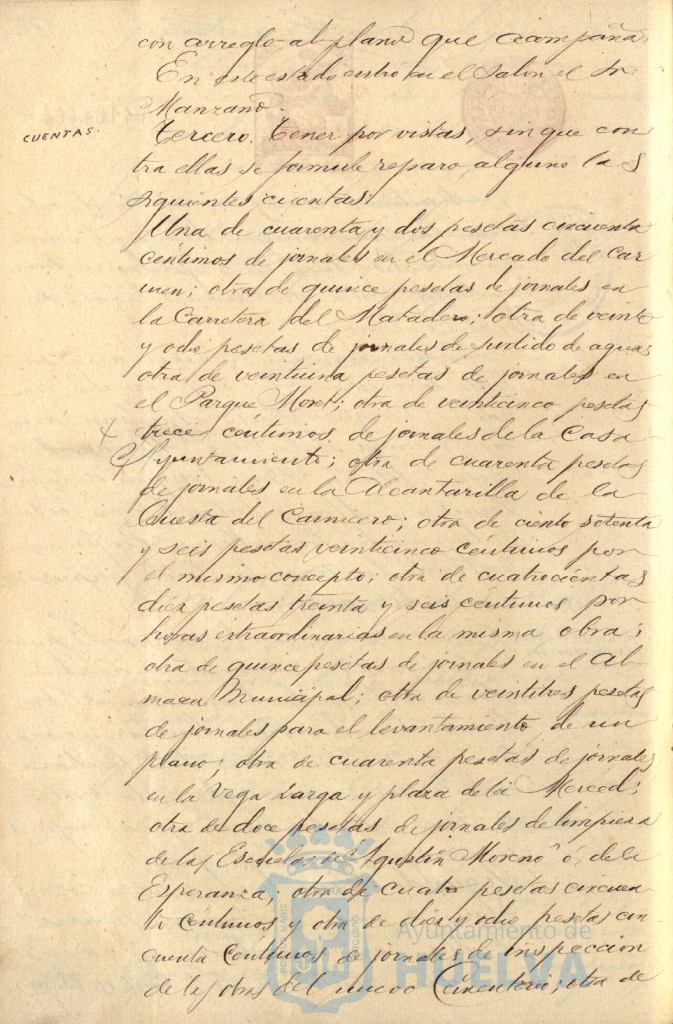 con arreglo al plano que acompaña.
En este estado entró en el Salon el Sr.
Manzano.
CUENTAS.
Tercero. Tener por vistas, sin que con
tra ellas se formule reparo alguno las
siguientes cuentas:
Una de cuarenta y dos pesetas cincuenta
centimos de jornales en el Mercado del Car
men; otra de quince pesetas de jornales en
la Carretera del Matadero; otra de veinte
y ocho pesetas de jornales de surtido de aguas;
otra de veintiuna pesetas de jornales en
el Parque Moret; otra de veinticinco pesetas
trece céntimos de jornales de la Casa
Ayuntamiento; otra de cuarenta pesetas
de jornales en la Alcantarilla de la
Cuesta del Carnicero; otra de ciento setenta
y seis pesetas veinticinco céntimos por
el mismo concepto; otra de cuatrocientas
diez pesetas treinta y seis céntimos por
horas extraordinarias en la misma obra;
otra de quince pesetas de jornales en el Al-
macen Municipal; otra de veintitres pesetas
de jornales para el levantamiento de un
plano; otra de cuarenta pesetas de jornales
en la Vega Larga y plaza de la Merced;
otra de doce pesetas de jornales de limpieza
de las Escuelas de "Agustín Moreno" ó de la
Esperanza; otra de cuatro pesetas cincuen-
ta centimos y otra de diez y ocho pesetas cin-
cuenta céntimos de jornales de inspeccion
de las obras del nuevo Cementerio; otra de
Ayuntamiento de
HUELVA